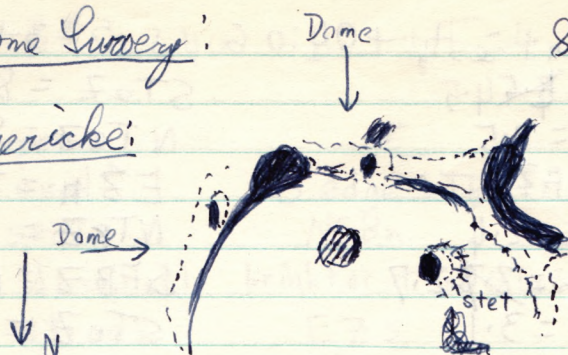 ome Survery:
Dome
8
ericke:
Dome
stet
N